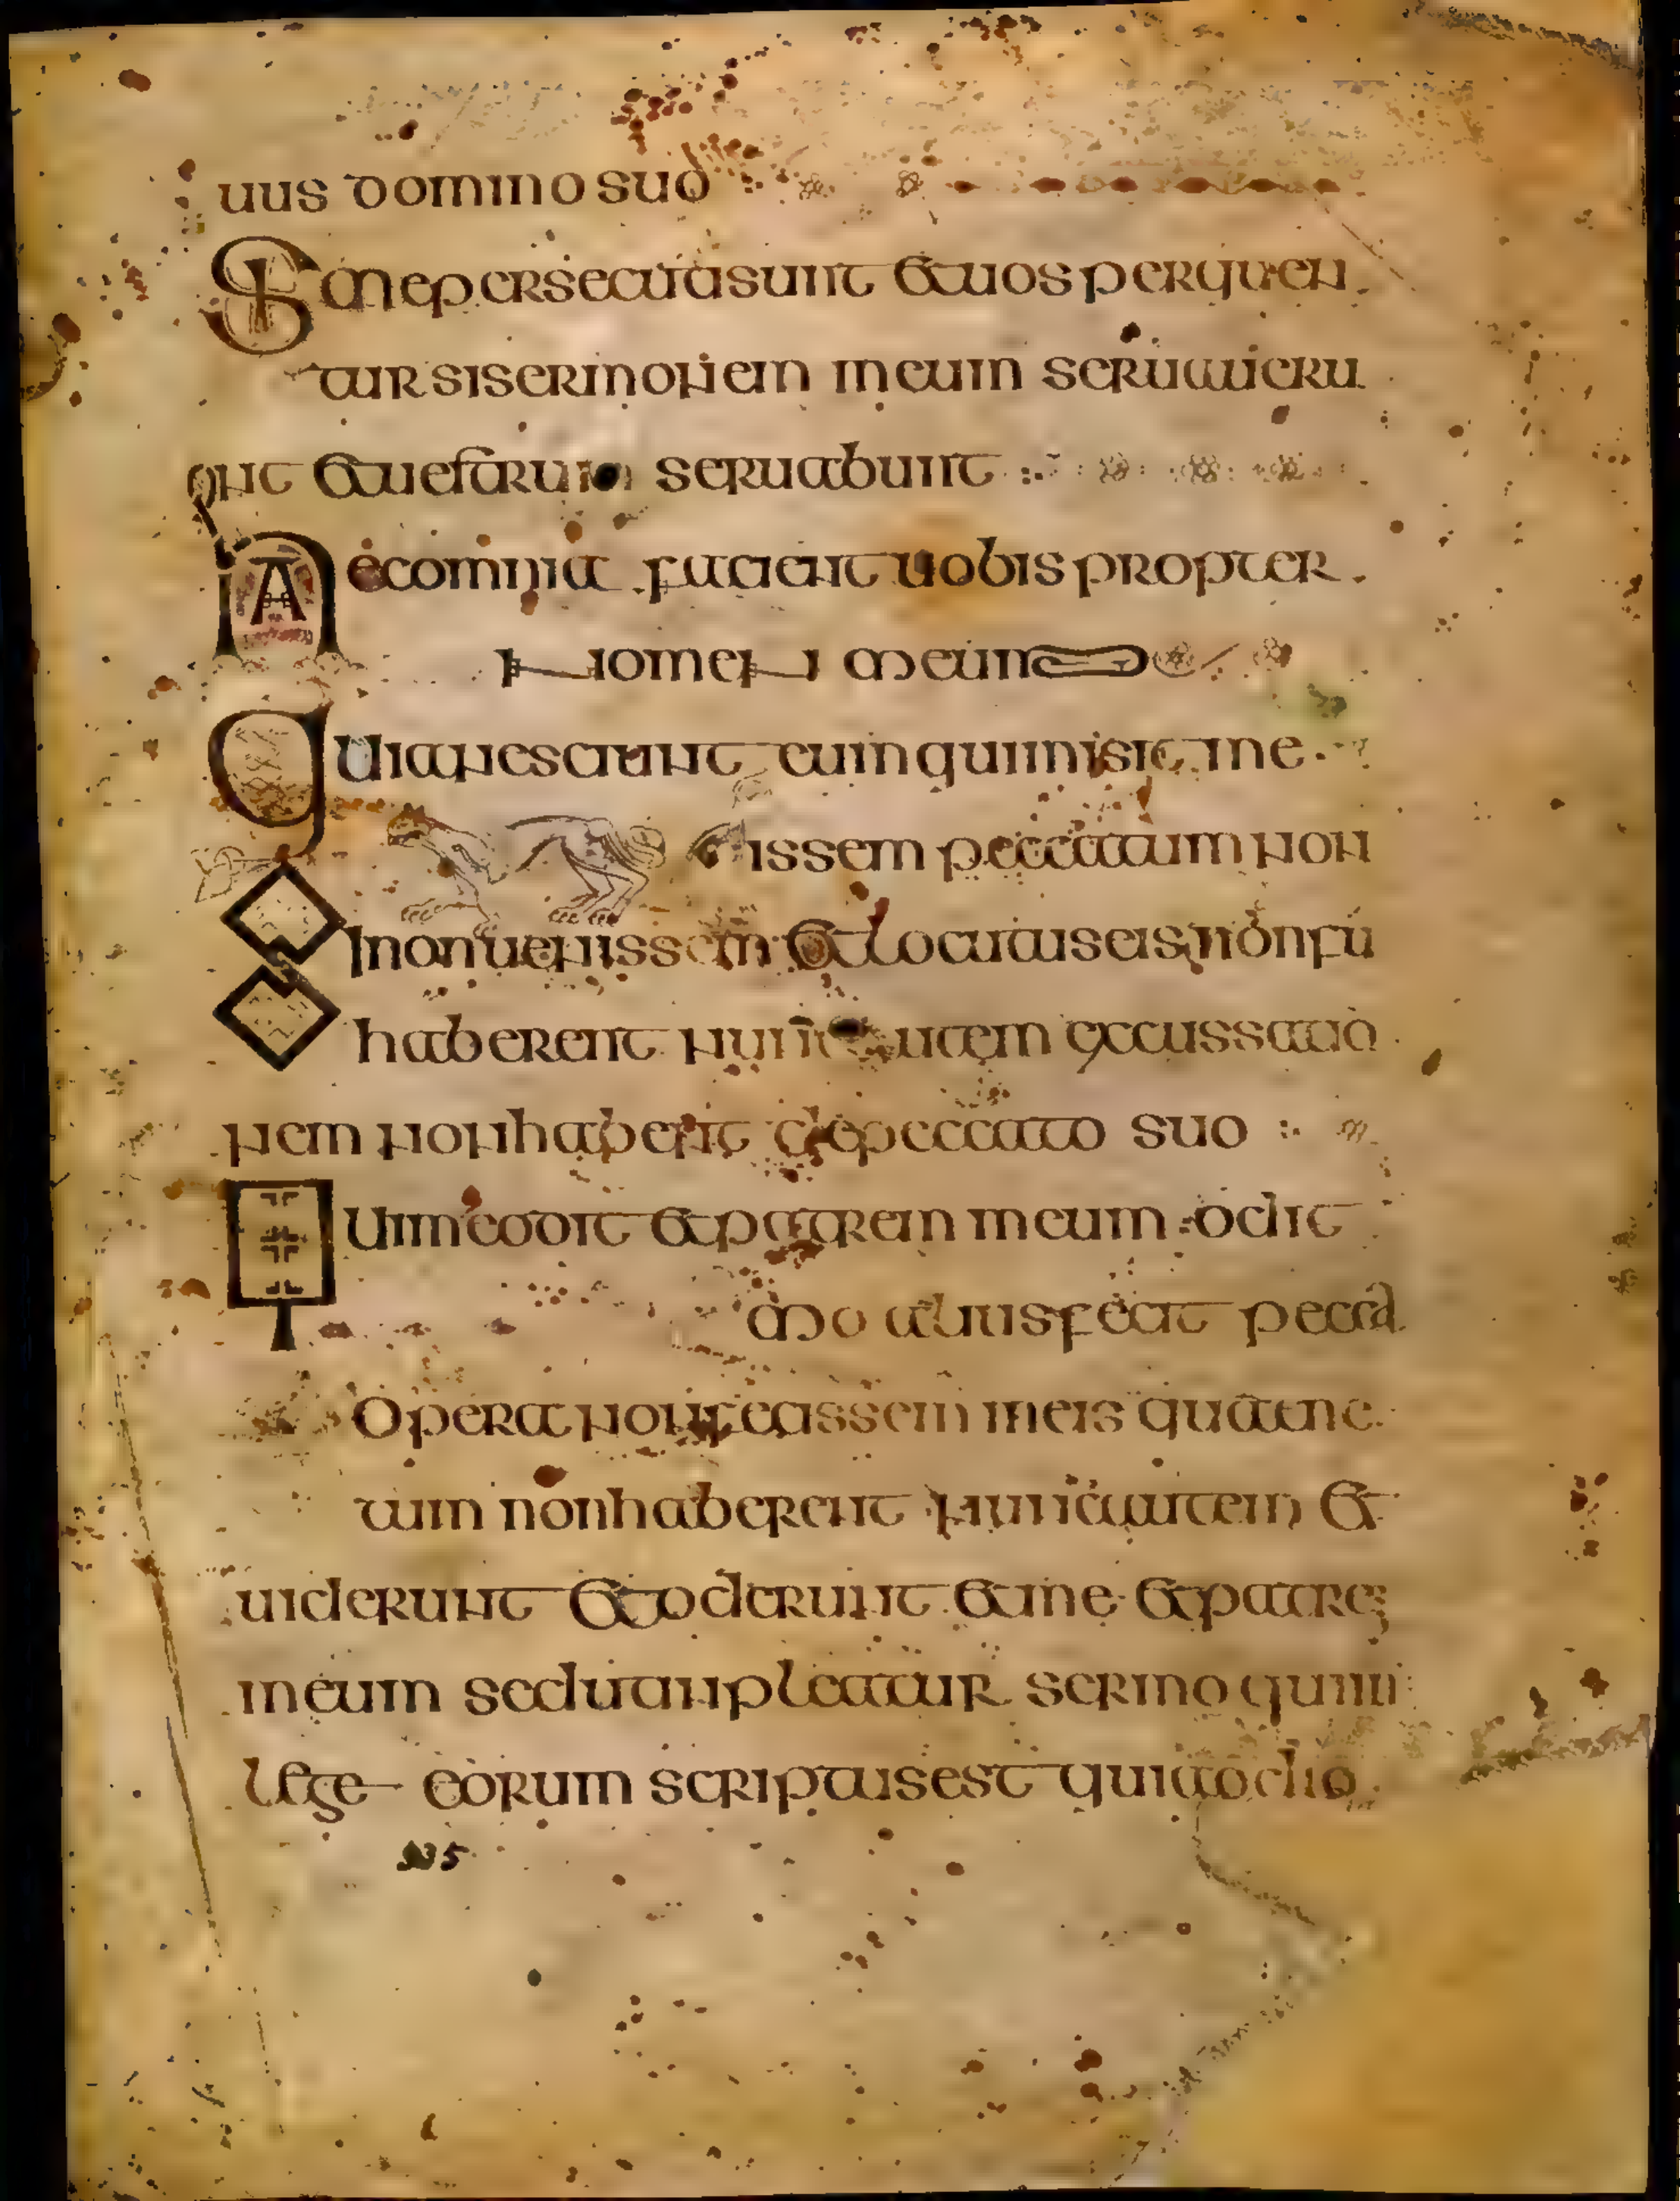 uus domino suo
Si me persecuti sunt & uos persequen
tur si sermonem meum seruaueru
nt & uestrum seruabunt
haec omnia facient uobis propter
nomen meum
Quia nesciunt eum qui misit me
issem peccatum non
Si non uenissem & locutus eis non fu
haberent nunc autem excussatio
nem non habent de peccato suo
Qui me odit & patrem meum odit
mo alius fecit pecca
Opera non fecissem in eis quae ne
tum non haberent nunc autem &
uiderunt & oderunt & me & patrem
meum sed ut inpleatur sermo qui in
lege eorum scriptus est quia odio
335